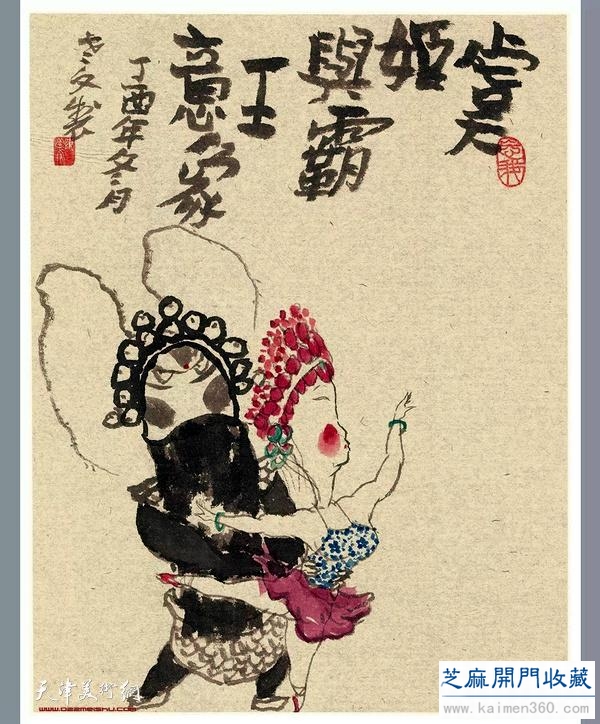 虞
姬
與霸
王
意象
丁酉年冬月
天津美術網
www.022meishu.com
芝麻開門收藏
www.kaimen360.com